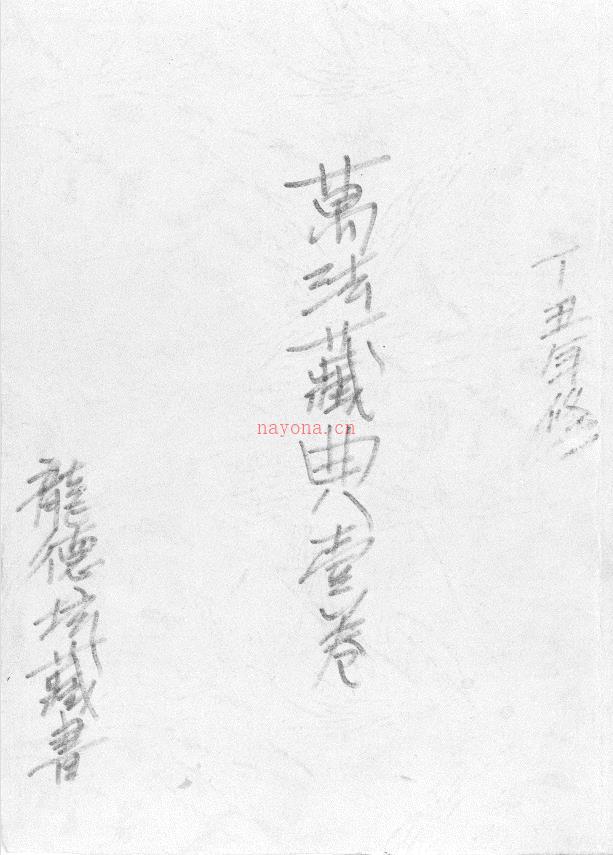 丁丑年修
萬法藏典壹卷
龍德坑藏書
nayona.cn